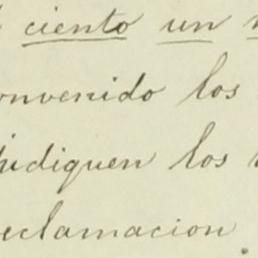 ciento un
onvenido los
indiquen los
eclamacion.